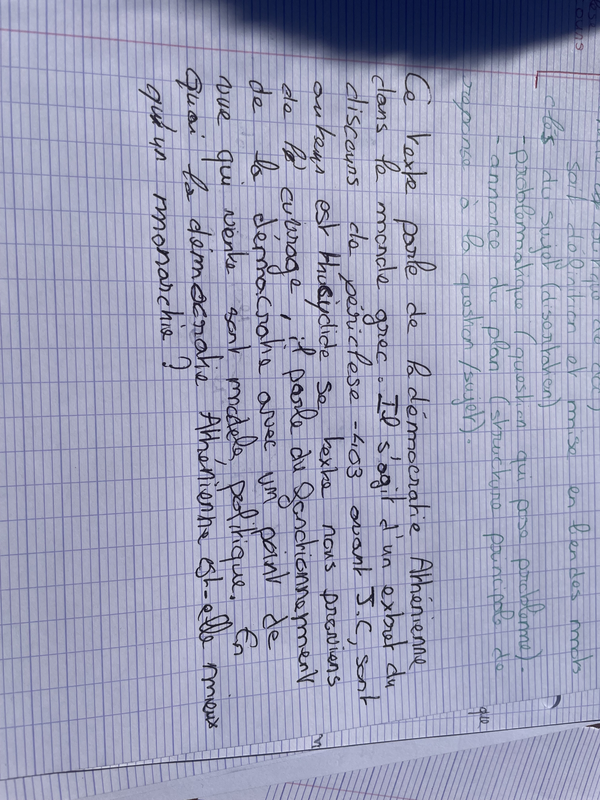 soit définition et mise en
clés du sujet (disertation)
- problématique (question qui pose problème).
- annonce du plan (structure principale de
réponse à la question/sujet).
Ce texte parle de la démocratie Athénienne
dans le monde grec. Il s'agit d'un extret du
discours de périclese -403 avant J.C, sont
auteur est thucydide se texte nous previens
de la , il parle du fonctionnement
de la démocratie avec un point de
vue qui vente sont modèle politique. En
quoi la démocratie Athénienne est-elle mieux
qu'un monarchie ?
que